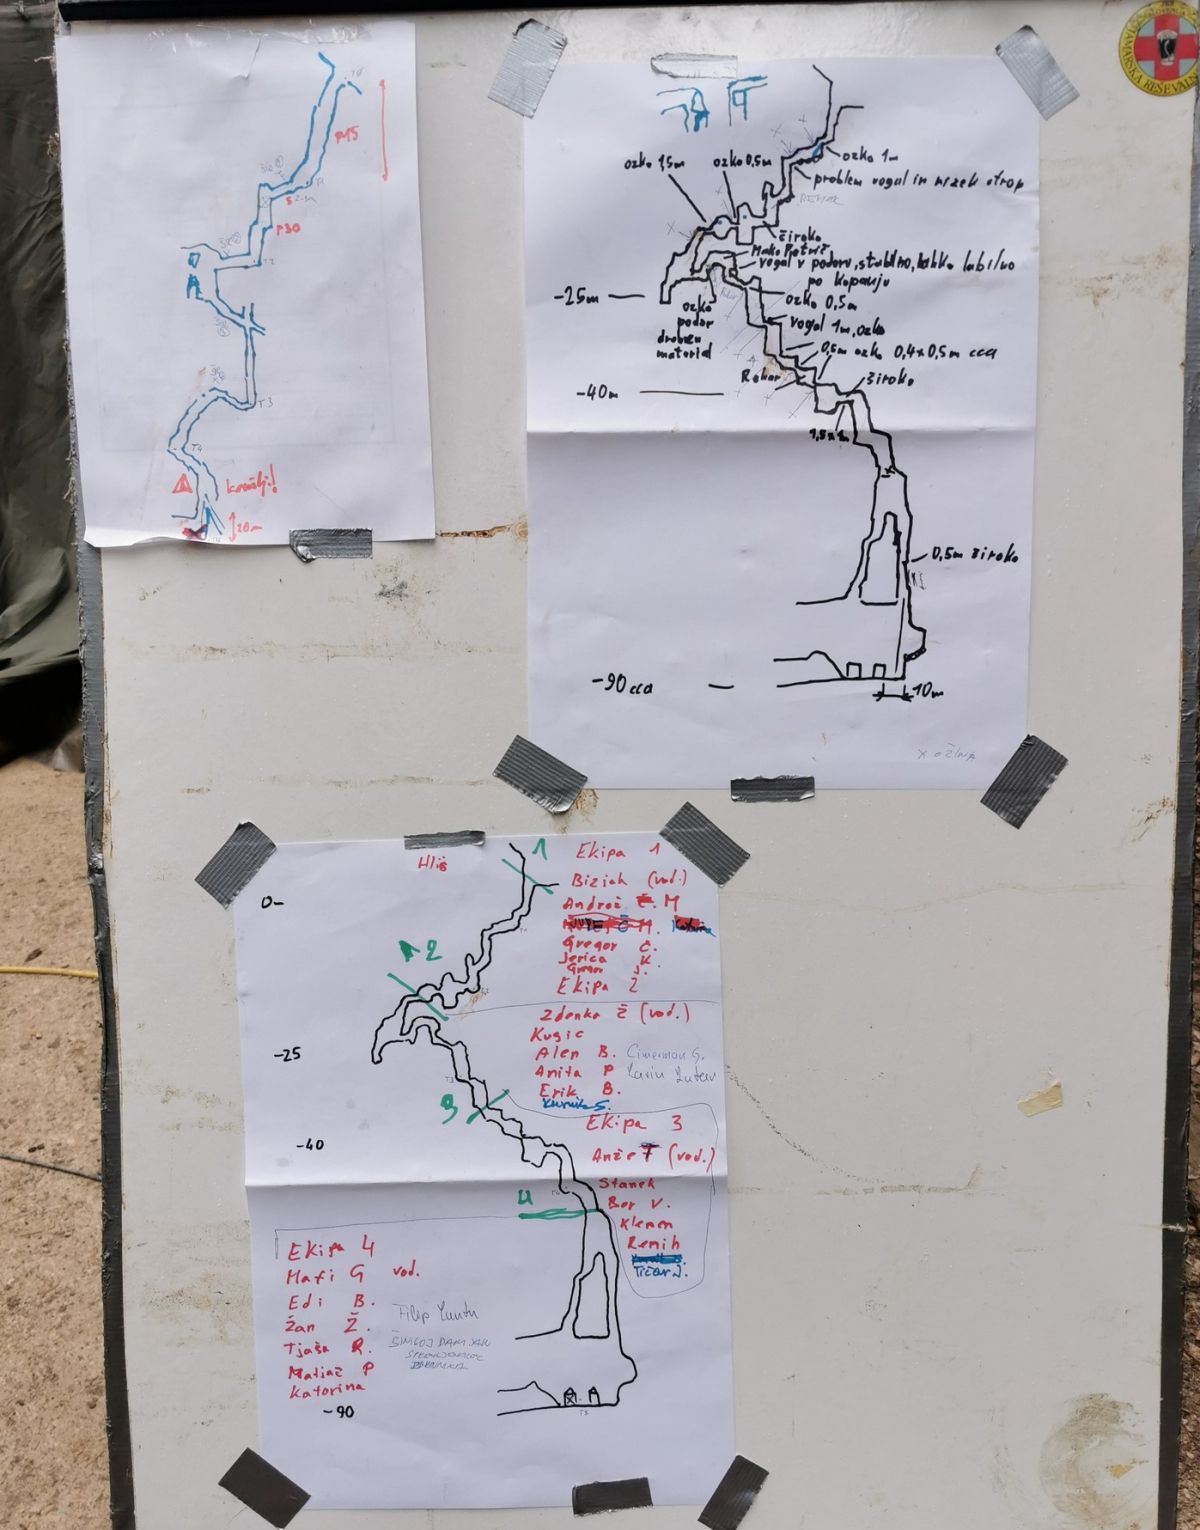 P15
T1
P30
T2
T3
T4
20m
ozko 1,5m
ozko 0,5m
ozko 1m
problem vogal in nizek strop
široko
vogal v podoru, stabilno, lahko labilno
po kopanju
-25m
ozko 0,5m
ozko
podor
droben
material
vogal 1m, ozko
0,5m ozko 0,4x0,5m cca
široko
-40m
1,5x1m
0,5m široko
-90 cca
10m
X OŽINA
1
Ekipa 1
Bizjak (vod.)
Andraž M
Gregor Č.
Jerica K
Ekipa 2
Zdenka Ž (vod.)
Kugič
Alen B. Cimerman G.
Anita P
Erik B.
0-
2
-25
3
Ekipa 3
Anže T (vod.)
Stanek
Bor V.
Klemen
Remih
-40
4
Ekipa 4
Mati G vod.
Edi B.
Žan Ž.
Tjaša R.
Matjaž P
Katarina
-90